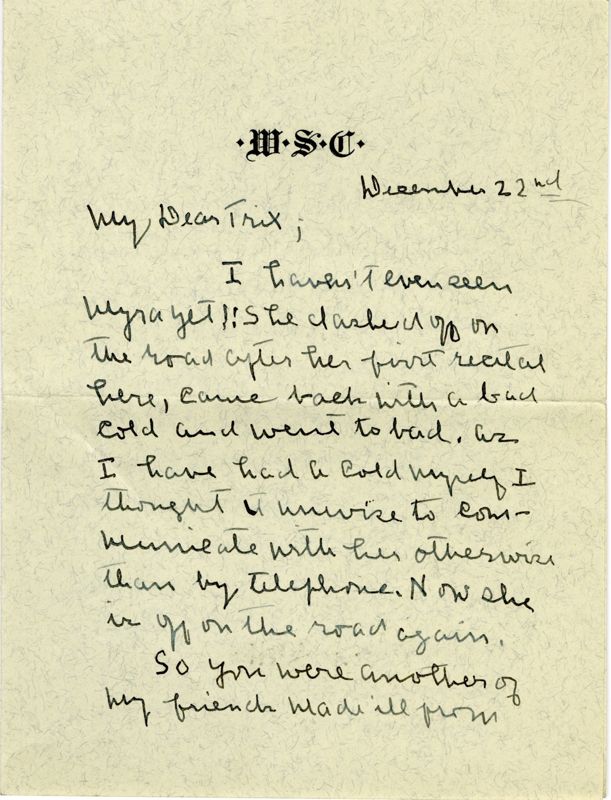 ·W·S·C·
December 22nd
My Dear Trix;
I haven't even seen
Myra yet!! She dashed off on
the road after her first recital
here, came back with a bad
cold and went to bad. as
I have had a cold myself I
thought it unwise to com-
municate with her otherwise
than by telephone. Now she
is off on the road again.
So you were another of
my friends made ill from